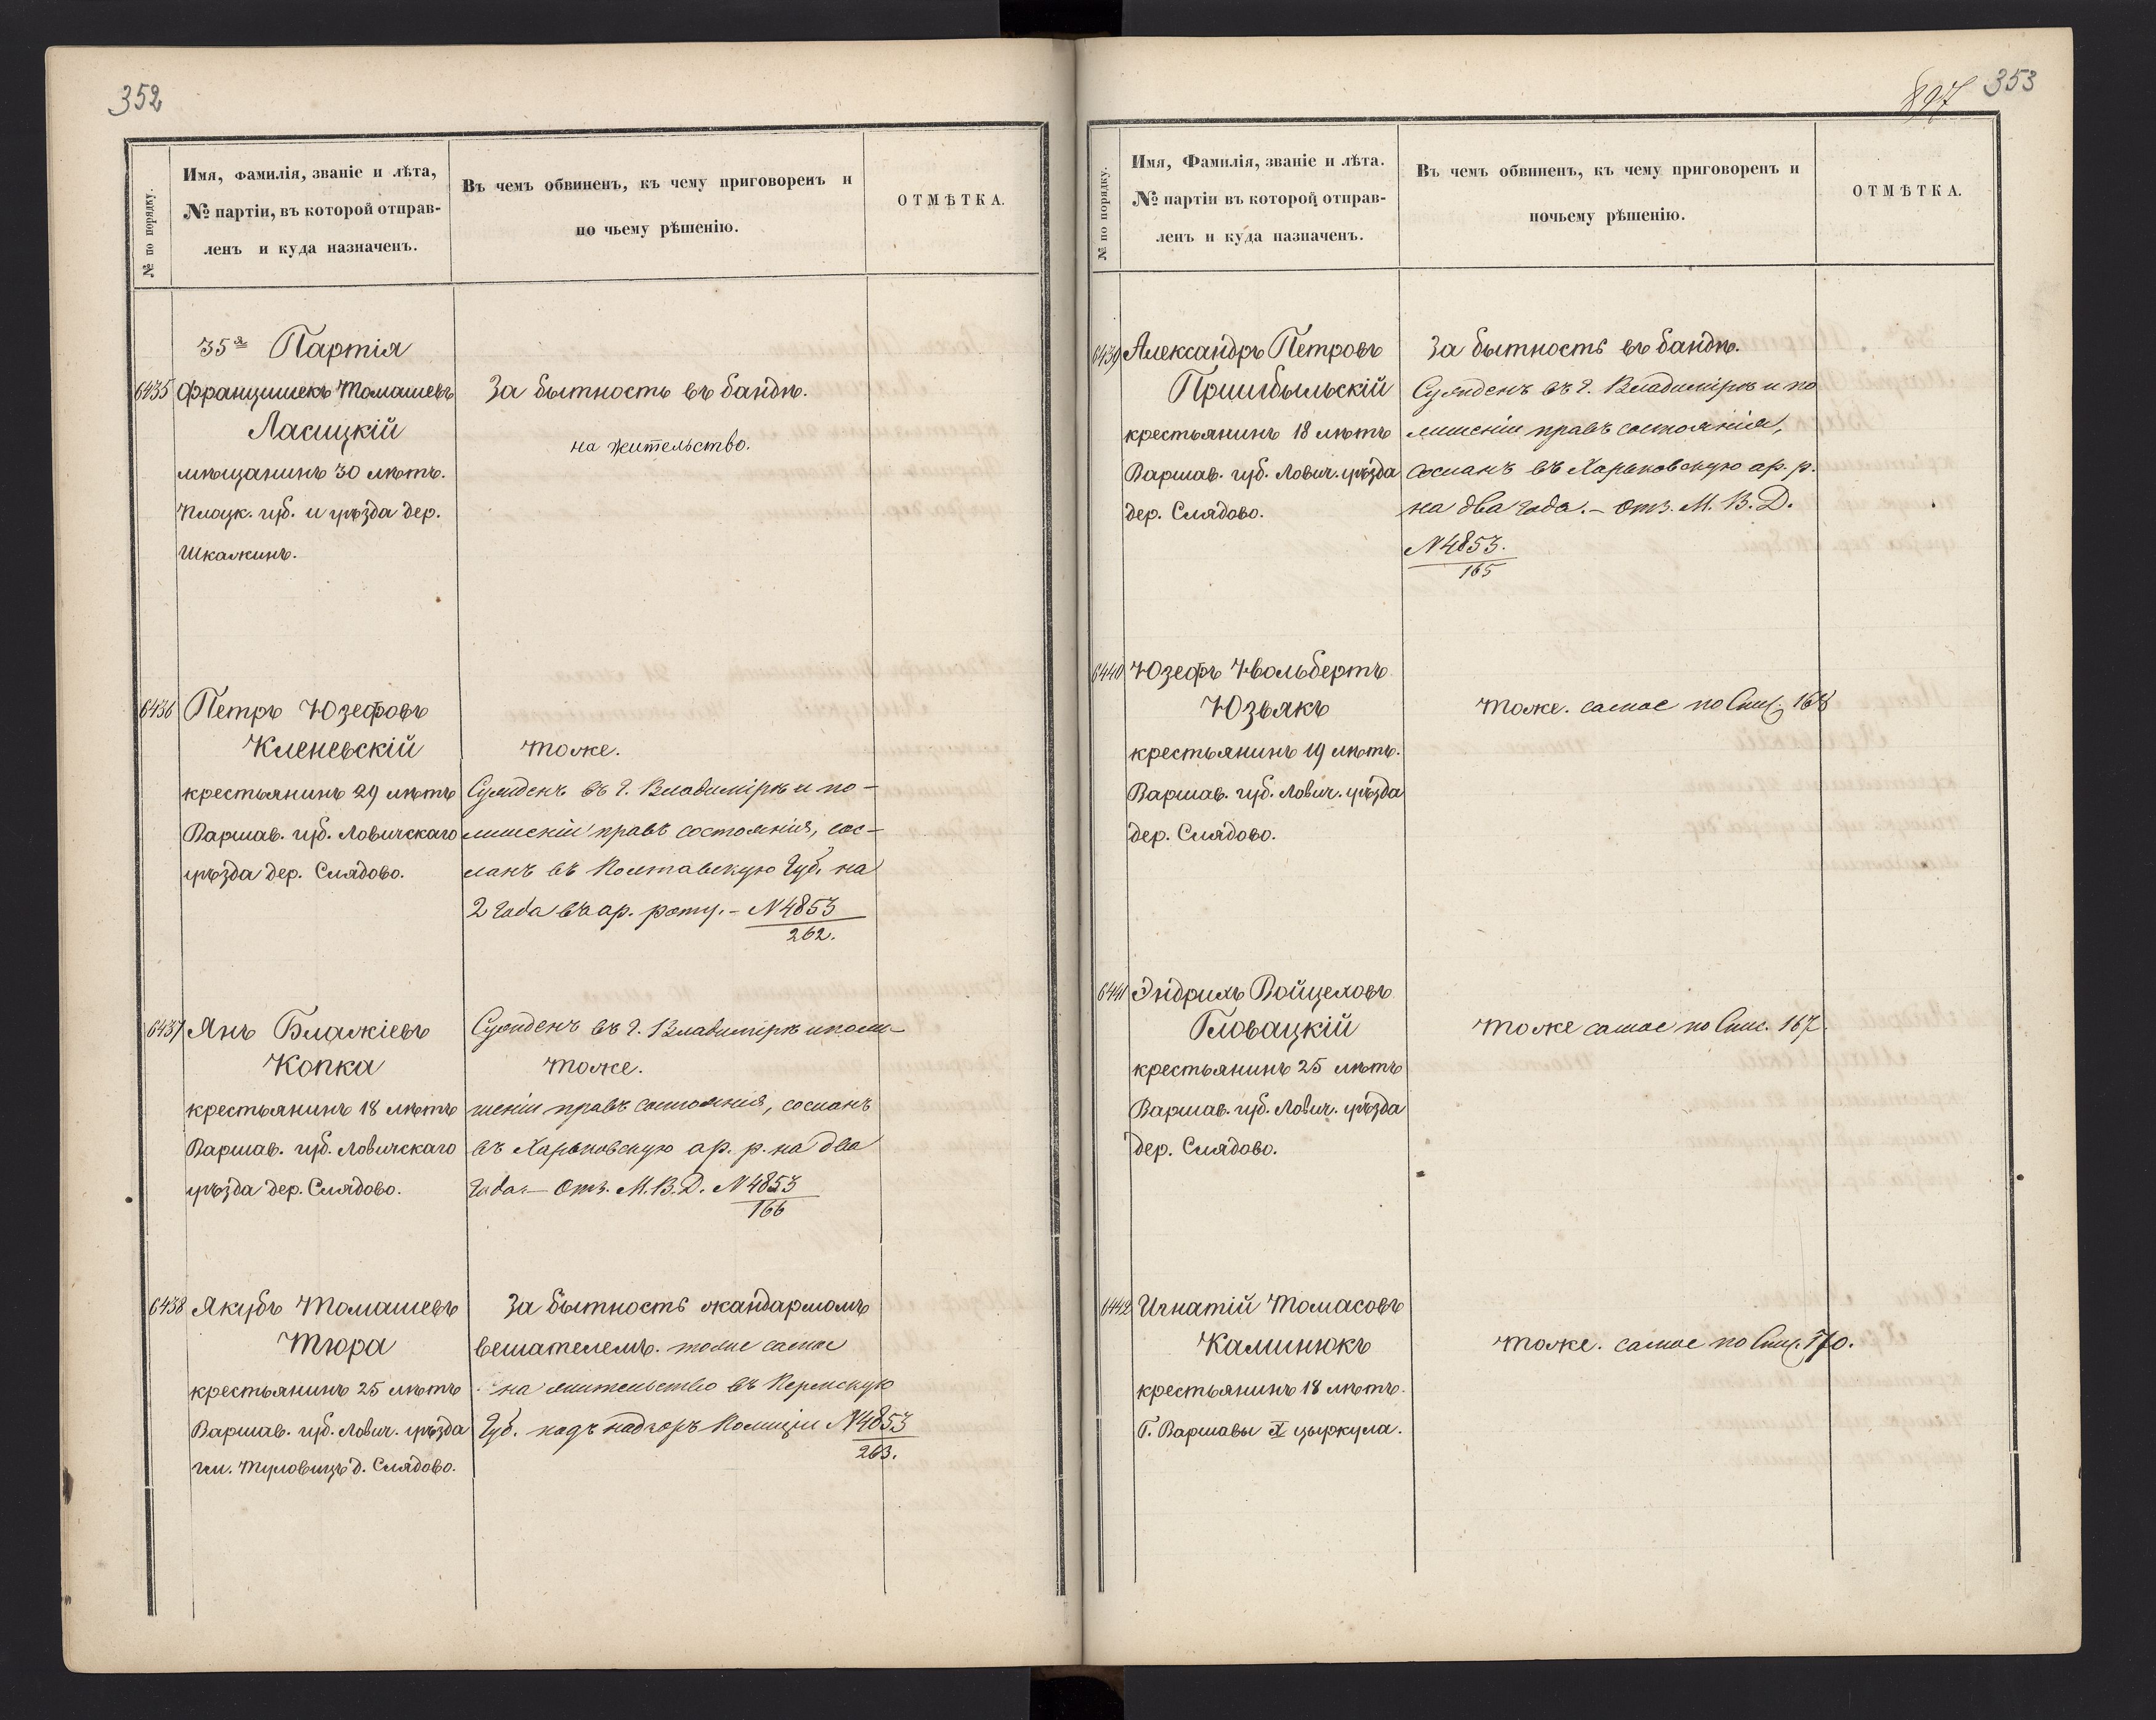 352
№ по порядку.
Имя, фамилія, званіе и лѣта,
№ партіи, въ которой отправ-
ленъ и куда назначенъ.
Въ чемъ обвиненъ, къ чему приговоренъ и
по чьему рѣшенію.
ОТМѢТКА.
35я Партія
6435 Францишекъ Томашевъ
Ласицкій
мѣщанинъ 30 лѣтъ.
Плоцк. губ. и уѣзда дер.
За бытность въ бандѣ.
на жительство.
6436 Петръ Юзефовъ
Кленевскій
крестьянинъ 29 лѣтъ
Варшав. губ. Ловичскаго
уѣзда дер. Слядово.
тоже.
Сужденъ въ г. Владимірѣ и по-
лишеніи правъ состоянія, сос-
ланъ въ Полтавскую Губ. на
2 года въ ар. роту. – N 4853
262.
6437 Янъ Блажіевъ
Копка
крестьянинъ 18 лѣтъ
Варшав. губ. Ловичскаго
уѣзда дер. Слядово.
Сужденъ въ г. Владимірѣ и по ли-
тоже.
шеніи правъ состоянія, сосланъ
въ Харьковскую ар. р. на два
года. – Отз. М. В. Д. N 4853
166
6438 Якубъ Томашевъ
Тюра
крестьянинъ 25 лѣтъ
Варшав. губ. Лович. уѣзда
гм. Туловицъ д. Слядово.
За бытность жандармомъ
вешателемъ. тоже самое
на жительство въ Пермскую
Губ. подъ надзоръ Полиціи N 4853
263.
353
897
№ по порядку.
Имя, Фамилія, званіе и лѣта.
№ партіи въ которой отправ-
ленъ и куда назначенъ.
Въ чемъ обвиненъ, къ чему приговоренъ и
почьему рѣшенію.
ОТМѢТКА.
6439 Александръ Петровъ
Пришбыльскій
крестьянинъ 18 лѣтъ
Варшав. губ. Лович. уѣзда
дер. Слядово.
За бытность въ бандѣ.
Сужденъ въ г. Владимірѣ и по
лишеніи правъ состоянія,
сосланъ въ Харьковскую ар. р.
на два года. – Отз. М. В. Д.
N 4853.
165
6440 Юзефъ
Юзьякъ
крестьянинъ 19 лѣтъ.
Варшав. губ. Лович. уѣзда
дер. Слядово.
тоже. самое по Спис. 168
6441 Эндрихъ Войцеховъ
Гловацкій
крестьянинъ 25 лѣтъ
Варшав. губ. Лович. уѣзда
дер. Слядово.
тоже самое по Спис. 167.
6442 Игнатій Томасовъ
Калинюкъ
крестьянинъ 18 лѣтъ.
Г. Варшавы X цыркула.
тоже. самое по Спис. 170.